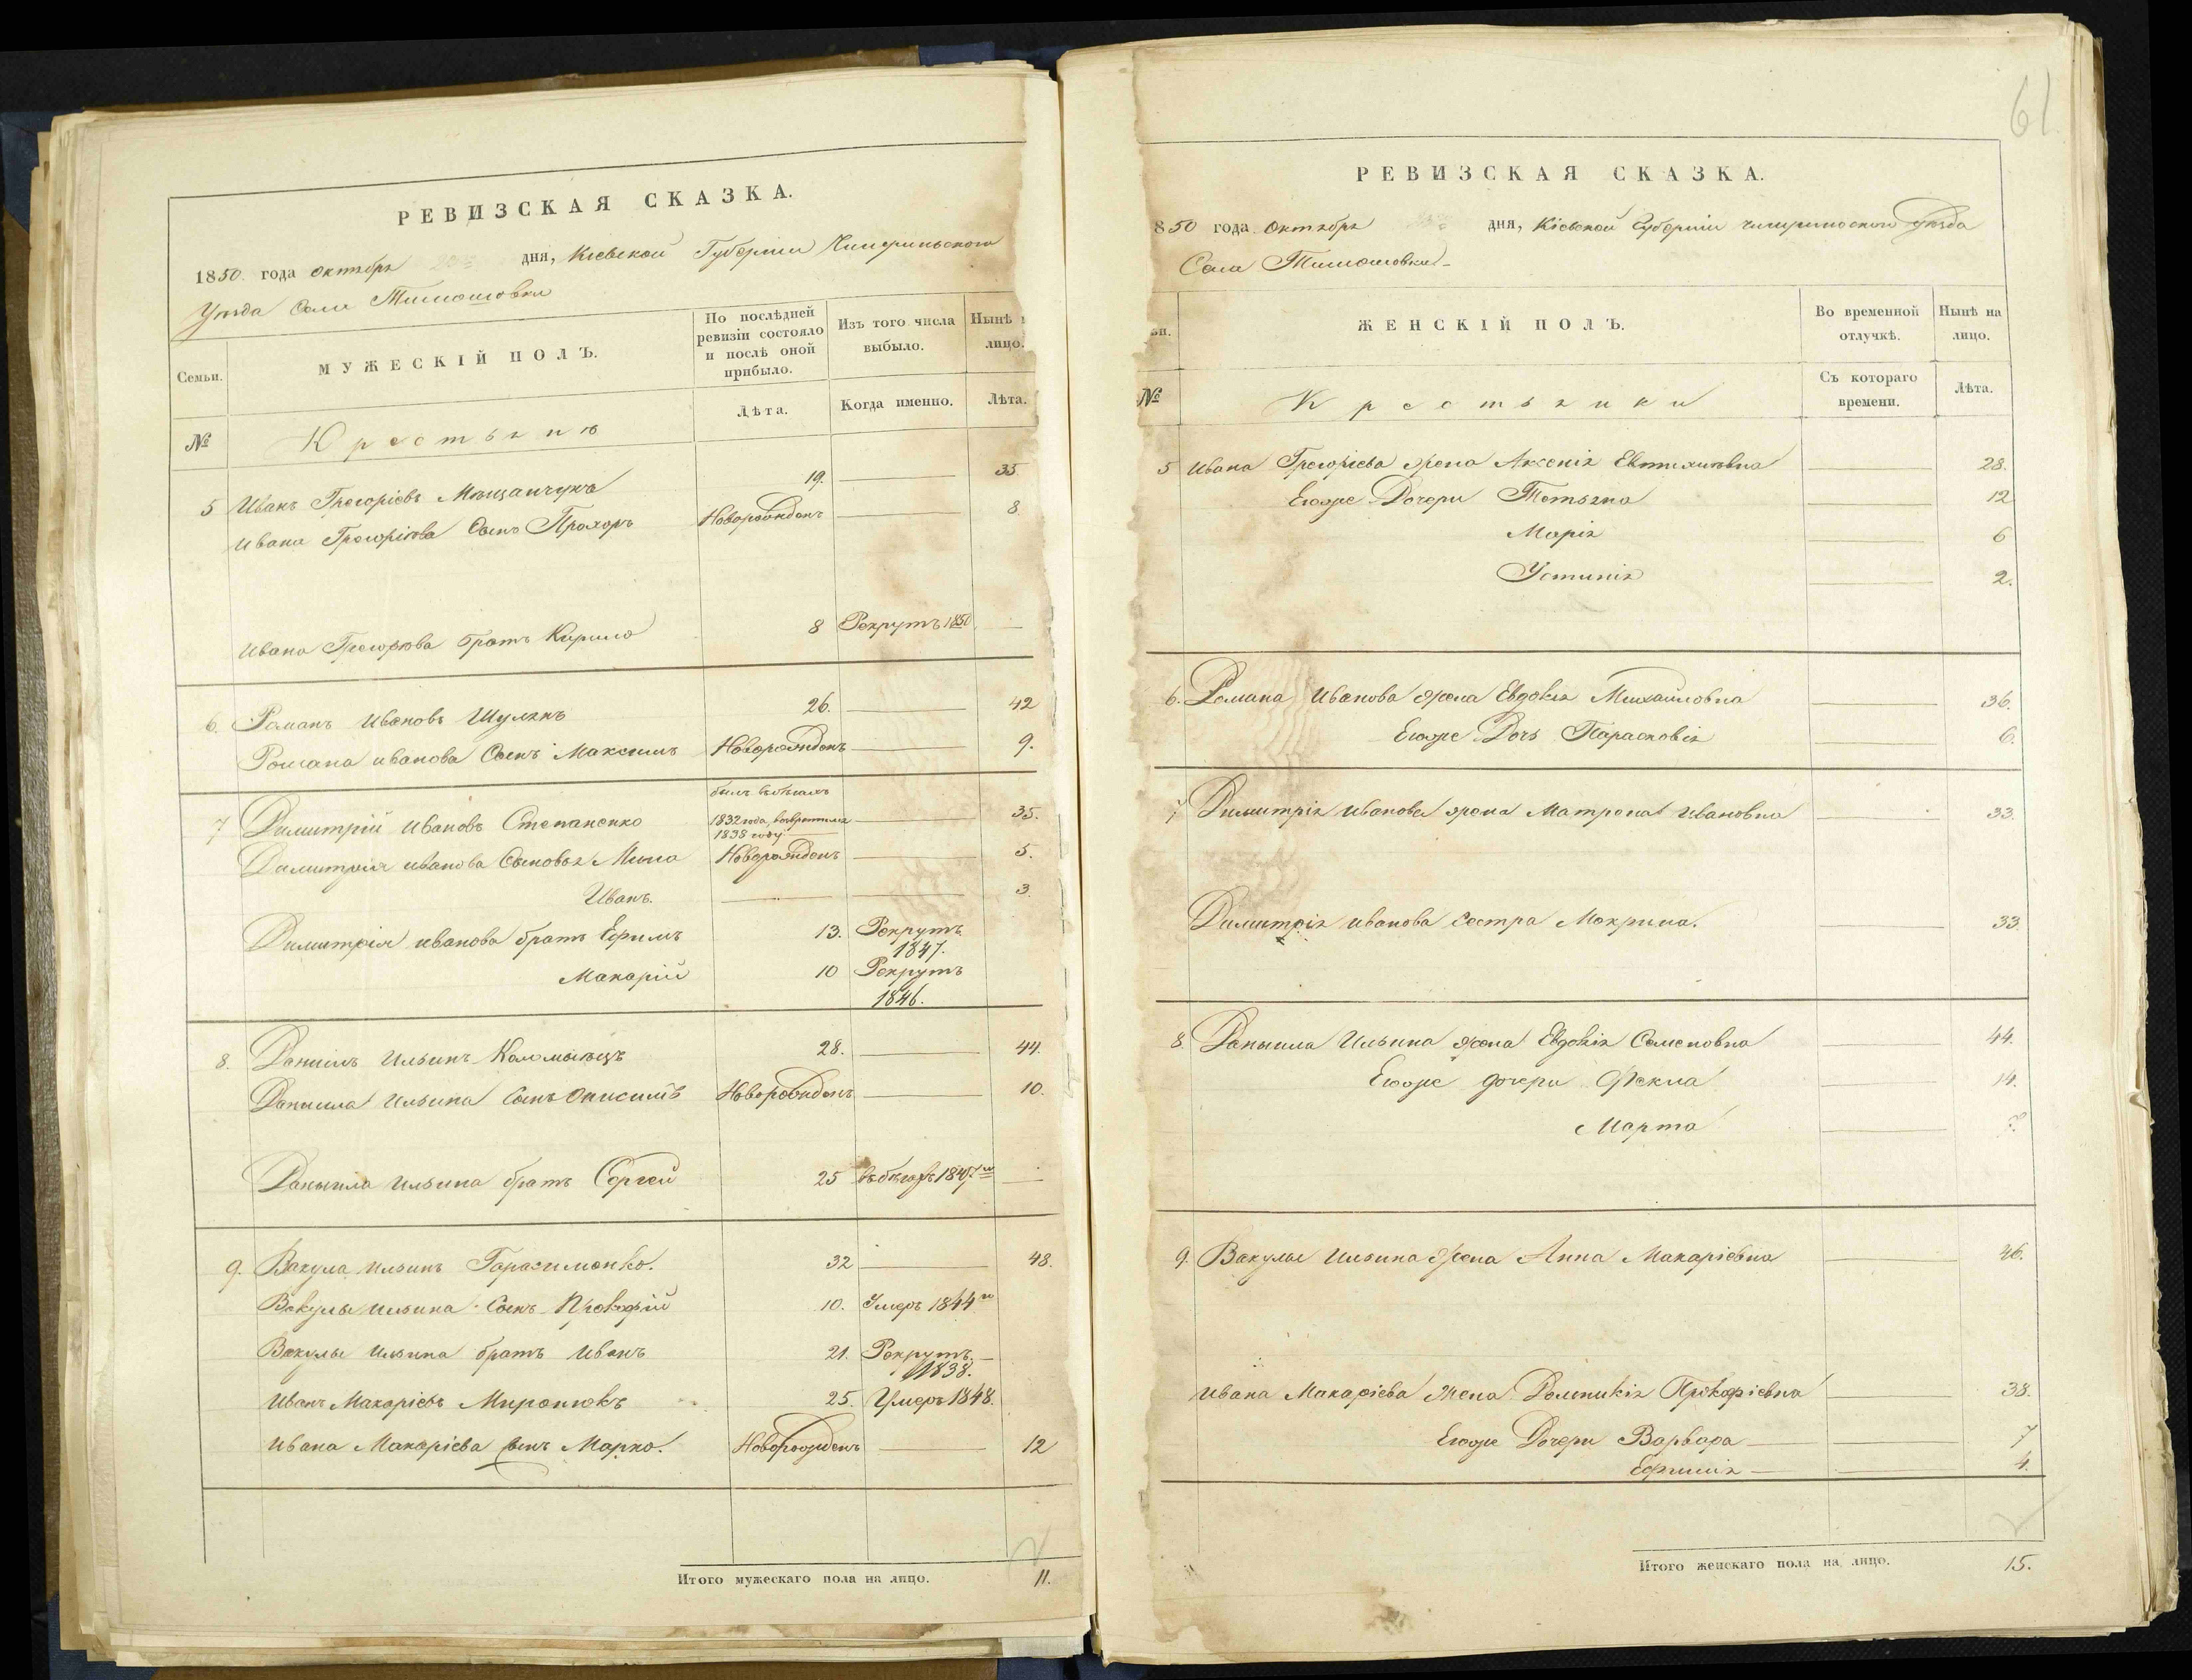 61
РЕВИЗСКАЯ СКАЗКА.
1850 года октября дня, Кіевской Губерніи Чигиринского
Уѣзда Села Тимошовки
Семьи.
МУЖЕСКІЙ ПОЛЪ.
По послѣдней ревизіи состояло и послѣ оной прибыло.
Изъ того числа выбыло.
Нынѣ лицо.
№
Крестьянѣ
Лѣта.
Когда именно.
Лѣта.
5 Иванъ Грегоріевъ Мѣщанчукъ 19. 35
Ивана Грегоріева Сынъ Прохоръ Новорожденъ 8
Ивана Грегоріева братъ Кирило 8 Рекрутъ 1850
6. Романъ Ивановъ Шулякъ 26. 42
Романа иванова Сынъ Максимъ Новорожденъ 9.
7 Димитрій Ивановъ Степаненко былъ въ бѣгахъ 1832 года, возвратился 1838 году 35.
Димитрія иванова Сыновья Мина Новорожденъ 5.
Иванъ. 3.
Димитрія иванова братъ Ефимъ 13. Рекрутъ 1847.
Макарій 10 Рекрутъ 1846.
8. Даніилъ Ильинъ Коломыецъ 28. 44.
Даніила Ильина Сынъ Онисимъ Новорожденъ 10.
Даніила Ильина братъ Сергей 25 въ бѣгахъ 1847
9. Вакула Ильинъ Гарасименко. 32 48.
Вакулы Ильина Сынъ Прокофій 10. Умеръ 1844
Вакулы Ильина братъ Иванъ 21. Рекрутъ 1838.
Иванъ Макаріевъ Миронюкъ 25. Умеръ 1848.
Ивана Макаріева сынъ Марко. Новорожденъ 12
Итого мужескаго пола на лицо. 11.
РЕВИЗСКАЯ СКАЗКА.
850 года октября дня, Кіевской Губерніи чигиринского уѣзда
Села Тимошовки
ЖЕНСКІЙ ПОЛЪ.
Во временной отлучкѣ.
Нынѣ на лицо.
№
Крестьянки
Съ котораго времени.
Лѣта.
5 Ивана Грегоріева жена Аксенія Евтихиевна 28.
Егоже Дочери Тетьяна 12
Марія 6
Устинія 2.
6. Романа Иванова жена Евдокія Михайловна 36.
Егоже Дочь Парасковія 6.
7 Димитрія Иванова жена Матрона Ивановна 33.
Димитрія иванова сестра Мокрина. 33.
8. Даниила Ильина жена Евдокія Семеновна 44.
Егоже дочери Фекла 14.
Марта
9. Вакулы Ильина жена Анна Макаріевна 46.
Ивана Макаріева жена Домникія Прокофіевна 38.
Егоже Дочери Варвара 7
Ефимія 4.
Итого женскаго пола на лицо. 15.